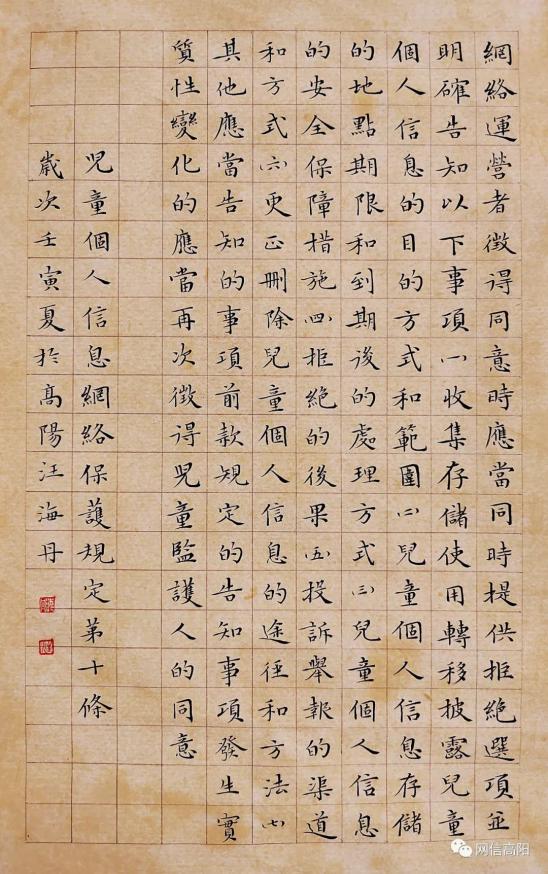 網絡運營者徵得同意時應當同時提供拒絕選項並
明確告知以下事項㈠收集存儲使用轉移披露兒童
個人信息的目的方式和範圍㈡兒童個人信息存儲
的地點期限和到期後的處理方式㈢兒童個人信息
的安全保障措施㈣拒絕的後果㈤投訴舉報的渠道
和方式㈥更正刪除兒童個人信息的途徑和方法㈦
其他應當告知的事項前款規定的告知事項發生實
質性變化的應當再次徵得兒童監護人的同意
兒童個人信息網絡保護規定第十條
歲次壬寅夏於高陽汪海丹
网信高阳